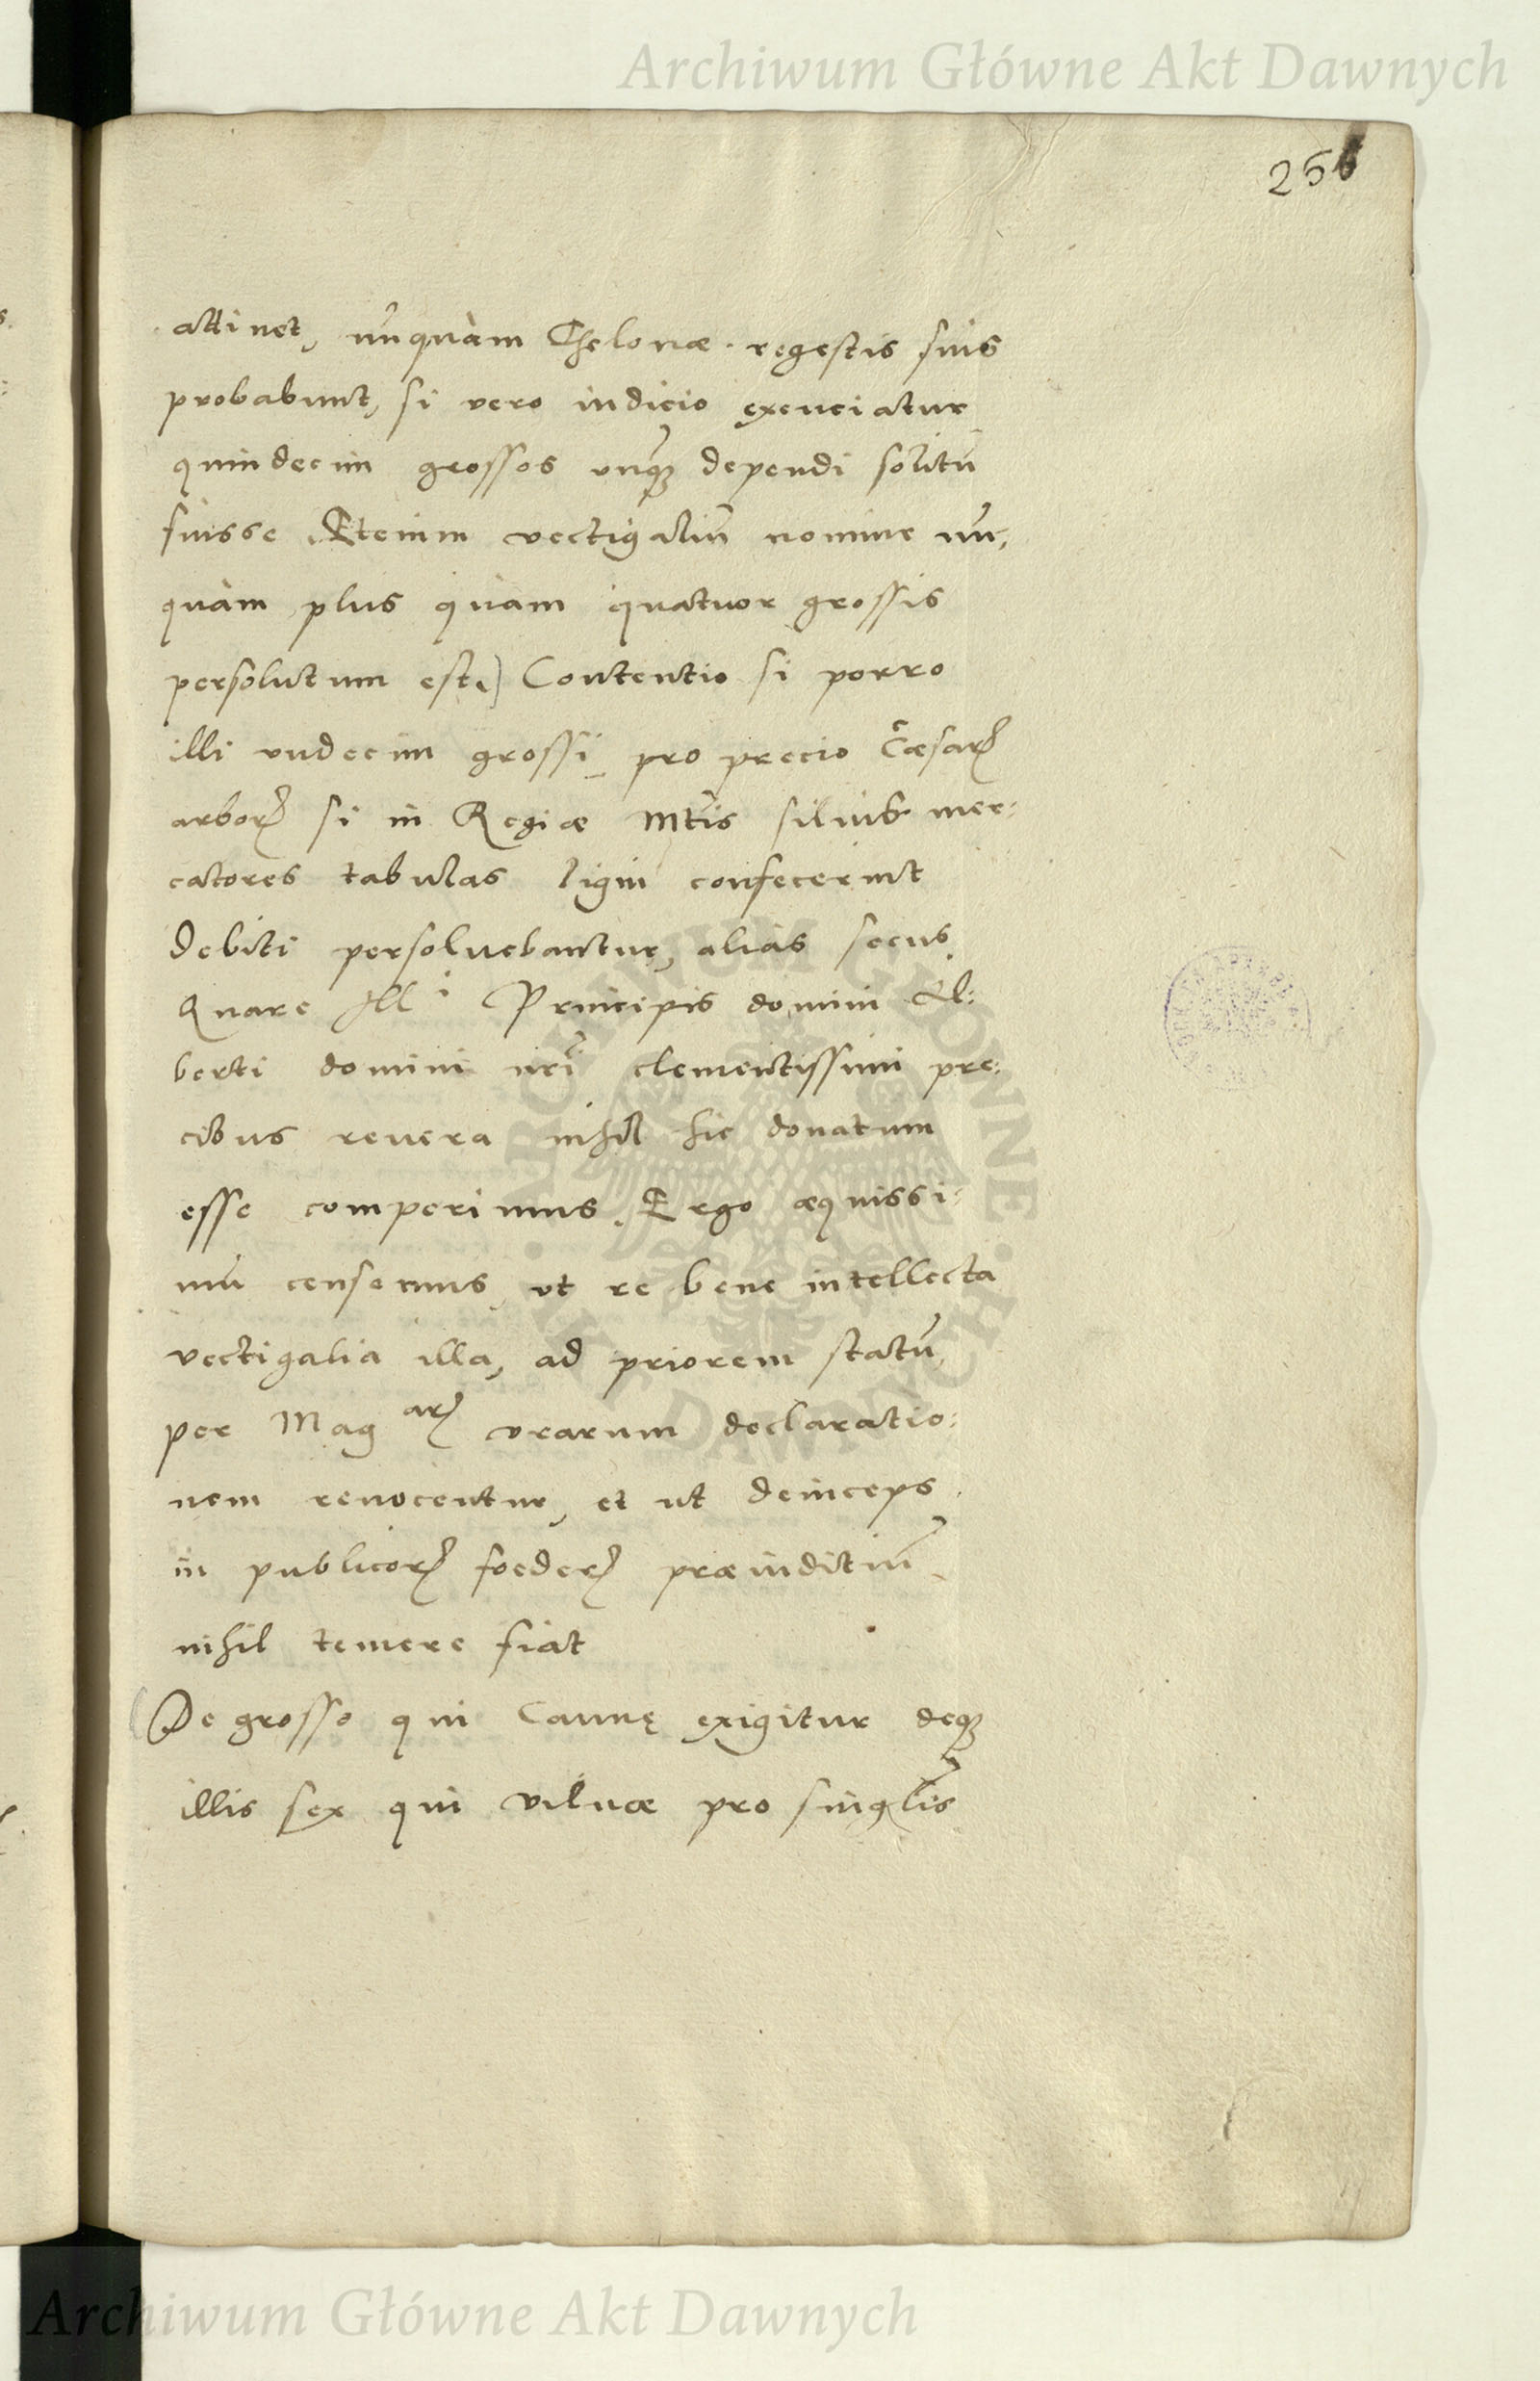 Archiwum Główne Akt Dawnych
256
attinet, nūquàm Thelonæ regestis suis
probabunt, si vero indicio exenciatur
quindecim grossos unq̃ꝫ dependi solitū
fuisse. Etenim vectigaliū nomine nū,
quàm plus quàm quatuor grossis
persolutum est.] Contentio si porro
illi undecim grossi pro precio Cæsarꝝ
arborꝝ si in Regiæ Mtis siluis mer:
catores tabulas ligni confecerint
debiti persoluebantur, alias secus.
Quare Ill i Principis domini Al:
berti domini nri clementissimi pre:
cibus reuera nihil hic donatum
esse comperimus. Ergo æquissi:
mū censemus, ut re bene intellecta
vectigalia illa, ad priorem statū
per Mag arꝝ vrarum declaratio:
nem reuocentur, et ut deinceps
in publicorꝝ foederꝝ præiuditiū
nihil temere fiat
De grosso qui Caunę exigitur deqꝫ
illis sex qui vilnæ pro singlis
ARCHIWUM GŁÓWNE AKT DAWNYCH
Archiwum Główne Akt Dawnych